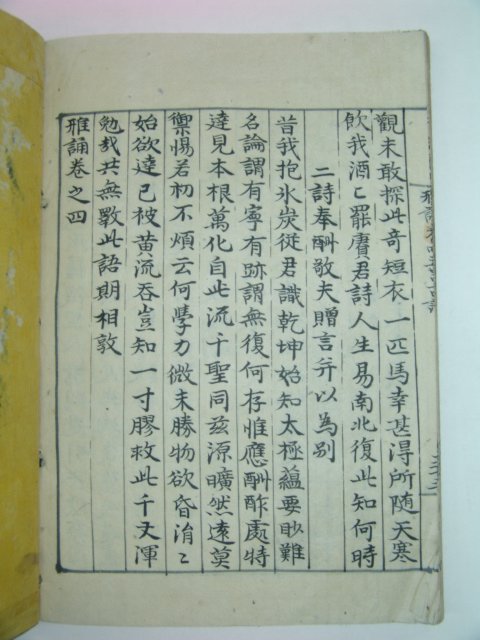 觀未敢探此奇短衣一匹馬幸甚得所隨天寒
飲我酒〻罷賡君詩人生易南北復此知何時
二詩奉酬敬夫贈言并以爲別
昔我抱氷炭從君識乾坤始知太極蘊要眇難
名論謂有寧有跡謂無復何存惟應酬酢處特
達見本根萬化自此流千聖同玆源曠然遠莫
禦惕若初不煩云何學力微未勝物欲昏涓〻
始欲達已被黄流呑豈知一寸膠救此千丈渾
勉哉共無斁此語期相敦
雅誦卷之四